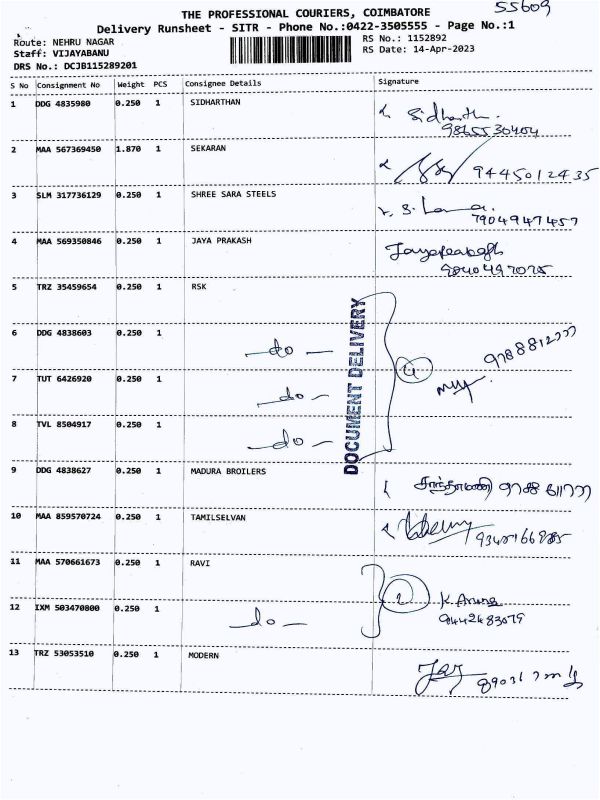 55609
THE PROFESSIONAL COURIERS, COIMBATORE
Delivery Runsheet - SITR - Phone No.:0422-3505555 - Page No.:1
Route: NEHRU NAGAR
RS No.: 1152892
Staff: VIJAYABANU
RS Date: 14-Apr-2023
DRS No.: DCJB115289201
S No Consignment No Weight PCS Consignee Details Signature
1 DDG 4835980 0.250 1 SIDHARTHAN Sidharth.
2 MAA 567369450 1.870 1 SEKARAN 9445012435
3 SLM 317736129 0.250 1 SHREE SARA STEELS
7904947457
4 MAA 569350846 0.250 1 JAYA PRAKASH
5 TRZ 35459654 0.250 1 RSK
6 DDG 4838603 0.250 1 -do-
7 TUT 6426920 0.250 1 -do-
8 TVL 8504917 0.250 1 -do-
DOCUMENT DELIVERY
4
9 DDG 4838627 0.250 1 MADURA BROILERS
10 MAA 859570724 0.250 1 TAMILSELVAN
11 MAA 570661673 0.250 1 RAVI
2 K. Aruna
12 IXM 503470800 0.250 1 -do-
9442483079
13 TRZ 53053510 0.250 1 MODERN